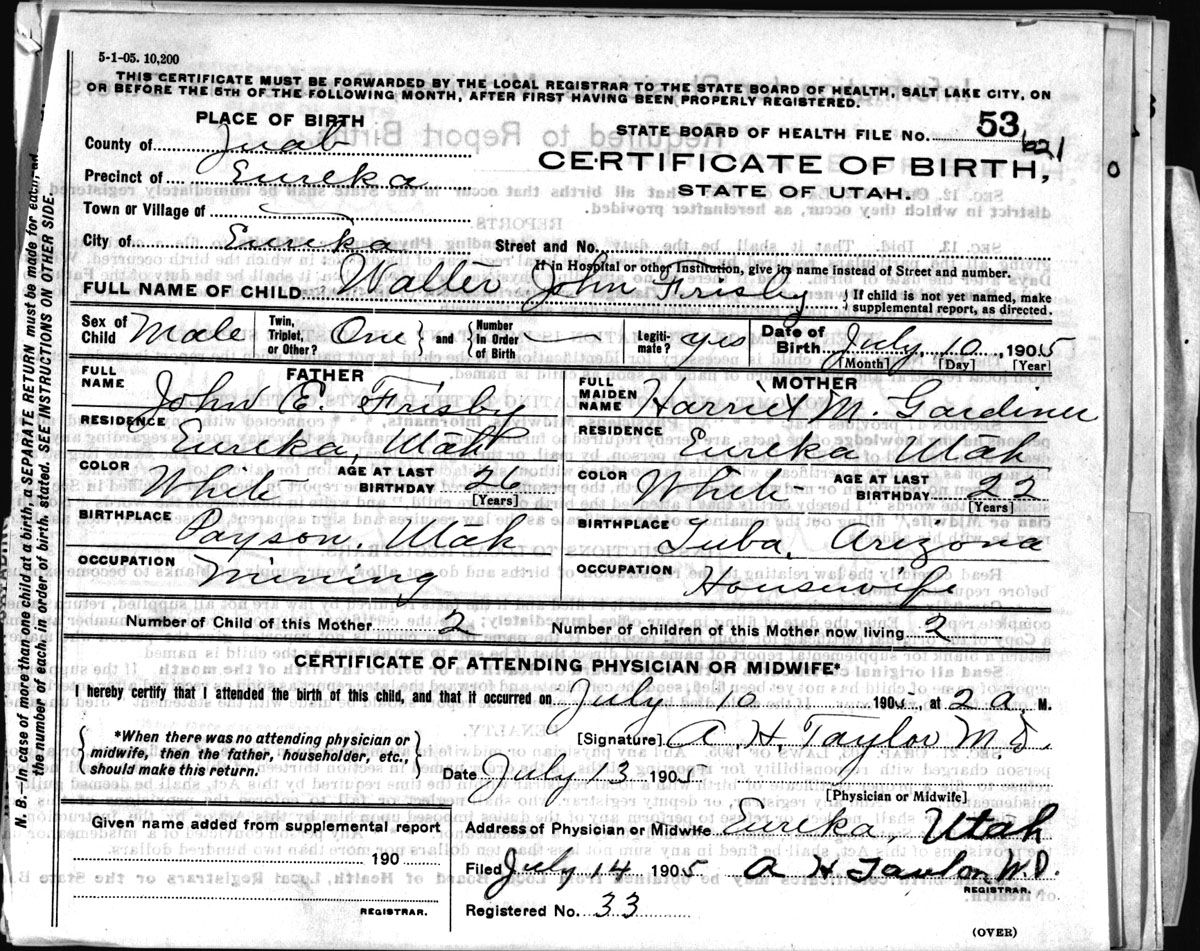 5-1-05. 10,200
THIS CERTIFICATE MUST BE FORWARDED BY THE LOCAL REGISTRAR TO THE STATE BOARD OF HEALTH, SALT LAKE CITY, ON
OR BEFORE THE 5TH OF THE FOLLOWING MONTH, AFTER FIRST HAVING BEEN PROPERLY REGISTERED.
PLACE OF BIRTH
STATE BOARD OF HEALTH FILE NO. 53
County of Juab
CERTIFICATE OF BIRTH,
Precinct of Eureka
STATE OF UTAH.
Town or Village of
City of Eureka Street and No.
If in Hospital or other Institution, give its name instead of Street and number.
FULL NAME OF CHILD Walter John Frisby { If child is not yet named, make supplemental report, as directed.
Sex of Child Male Twin, Triplet, or Other? One } and { Number In Order of Birth Legiti-mate? yes Date of Birth July 10, 1905
[Month] [Day] [Year]
FATHER MOTHER
FULL NAME John E. Frisby FULL MAIDEN NAME Harriet M. Gardiner
RESIDENCE Eureka, Utah RESIDENCE Eureka Utah
COLOR White AGE AT LAST BIRTHDAY 26 [Years] COLOR White AGE AT LAST BIRTHDAY 22 [Years]
BIRTHPLACE Payson, Utah BIRTHPLACE Tuba, Arizona
OCCUPATION Mining OCCUPATION Housewife
Number of Child of this Mother 2 Number of children of this Mother now living 2
CERTIFICATE OF ATTENDING PHYSICIAN OR MIDWIFE*
I hereby certify that I attended the birth of this child, and that it occurred on July 10 1905, at 2 a. M.
*When there was no attending physician or
midwife, then the father, householder, etc.,
should make this return.
[Signature] A. H. Taylor M.D.
Date July 13 1905
[Physician or Midwife]
Given name added from supplemental report
190
REGISTRAR.
Address of Physician or Midwife Eureka, Utah
Filed July 14 1905 A H Taylor M.D.
REGISTRAR.
Registered No. 33
(OVER)
N. B.—In case of more than one child at a birth, a SEPARATE RETURN must be made for each, and
the number of each, in order of birth, stated. SEE INSTRUCTIONS ON OTHER SIDE.